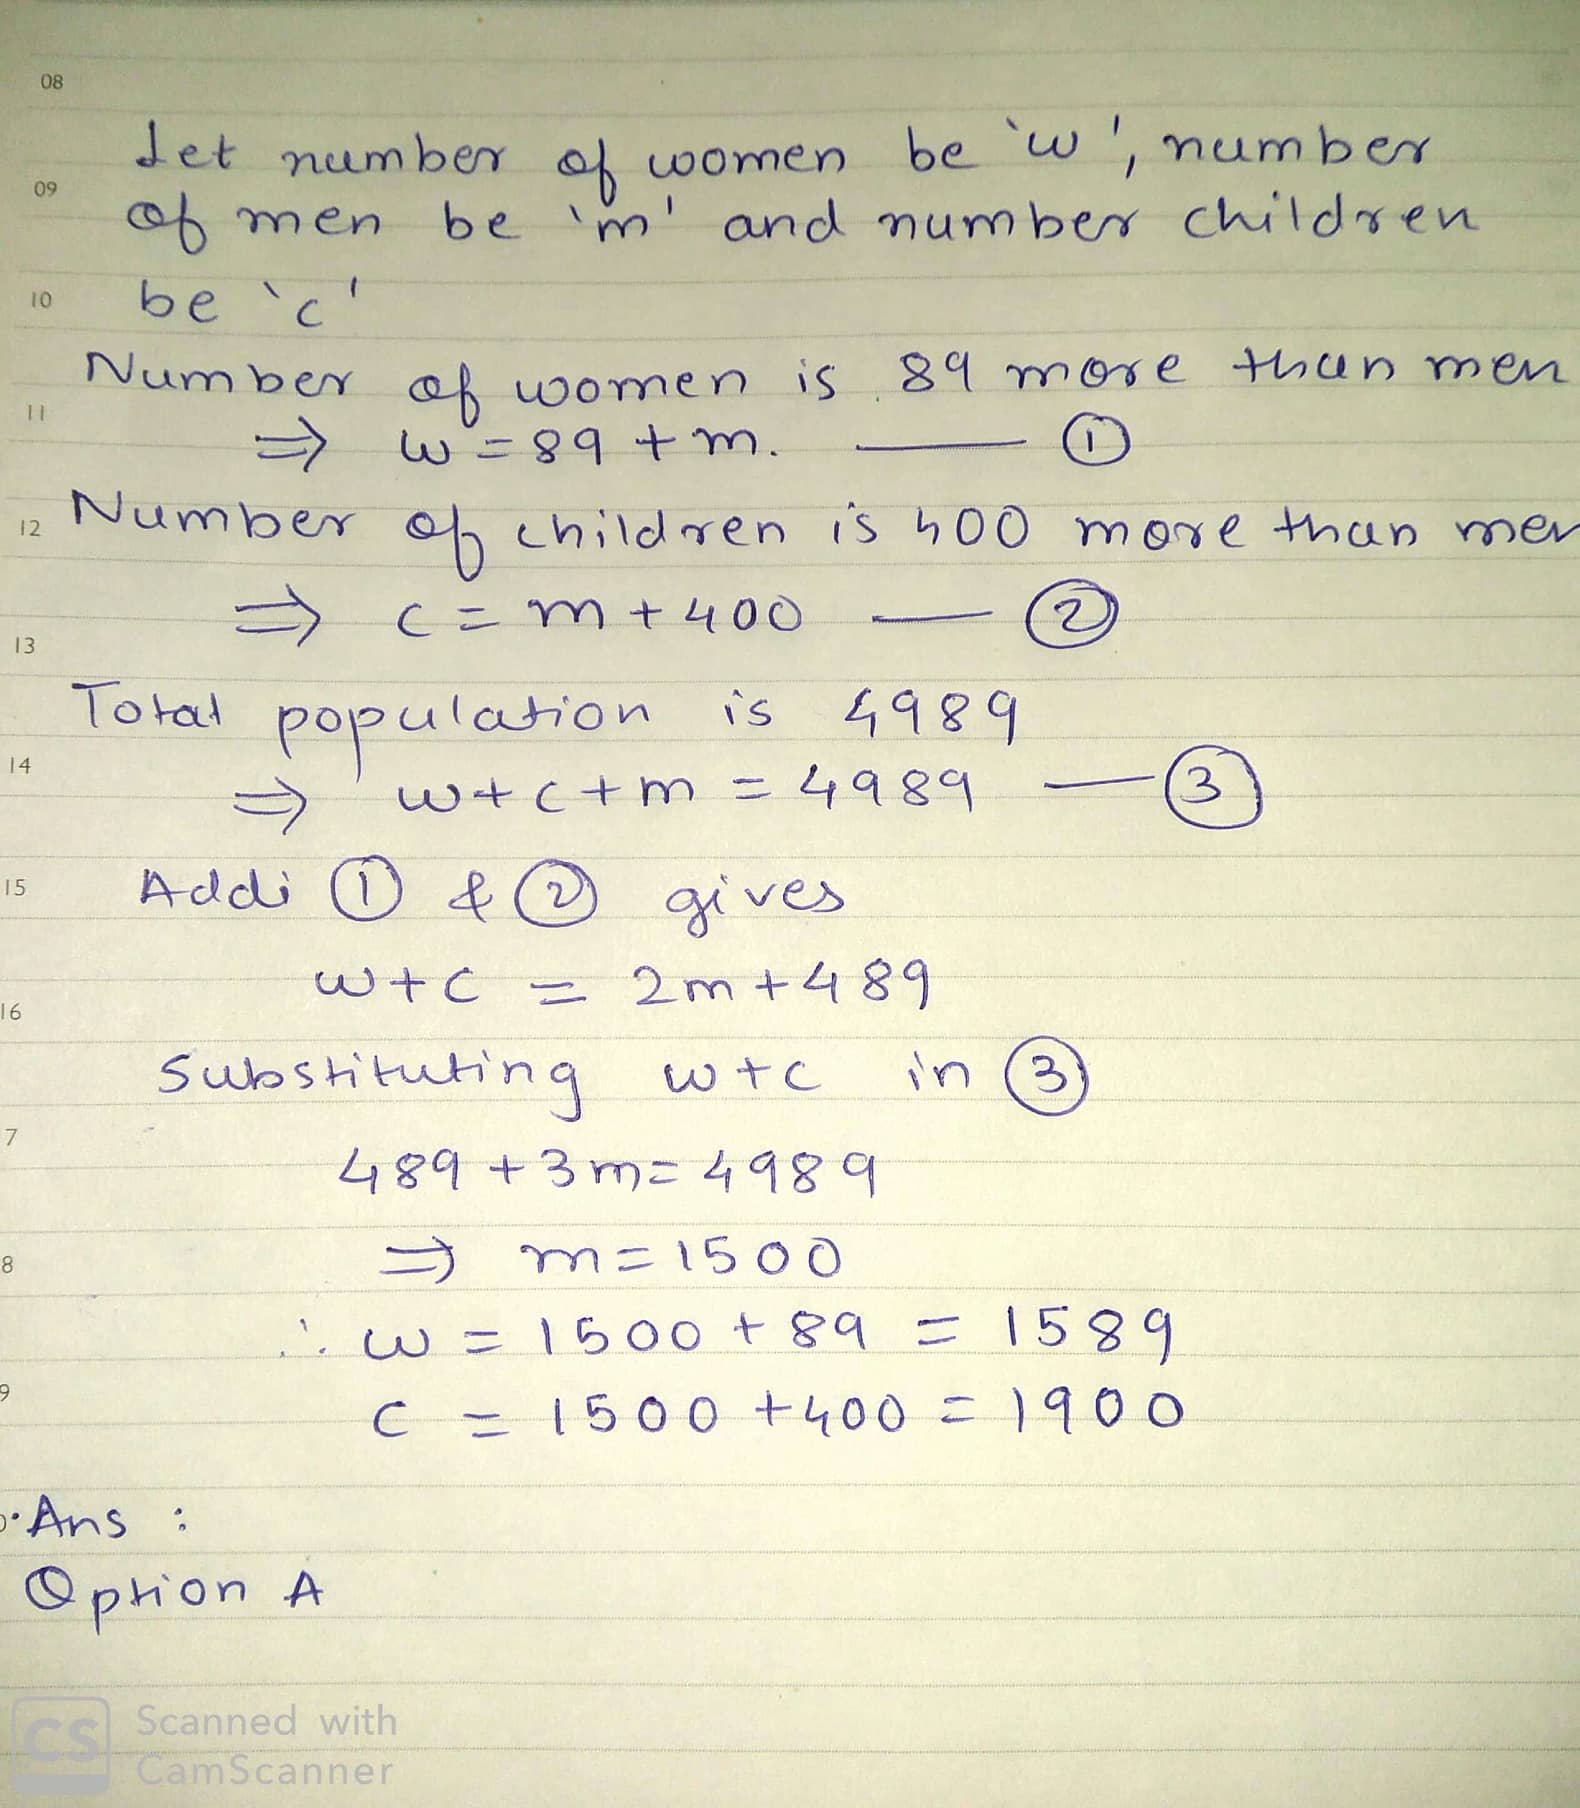 08
Let number of women be 'w', number
09
of men be 'm' and number children
10
be 'c'
Number of women is 89 more than men
11
⇒ w = 89 + m. — ①
12
Number of children is 400 more than men
⇒ c = m + 400 — ②
13
Total population is 4989
14
⇒ w + c + m = 4989 — ③
15
Addi ① & ② gives
w + c = 2m + 489
16
Substituting w + c in ③
7
489 + 3m = 4989
8
⇒ m = 1500
∴ w = 1500 + 89 = 1589
9
c = 1500 + 400 = 1900
Ans :
Option A
CS Scanned with
CamScanner